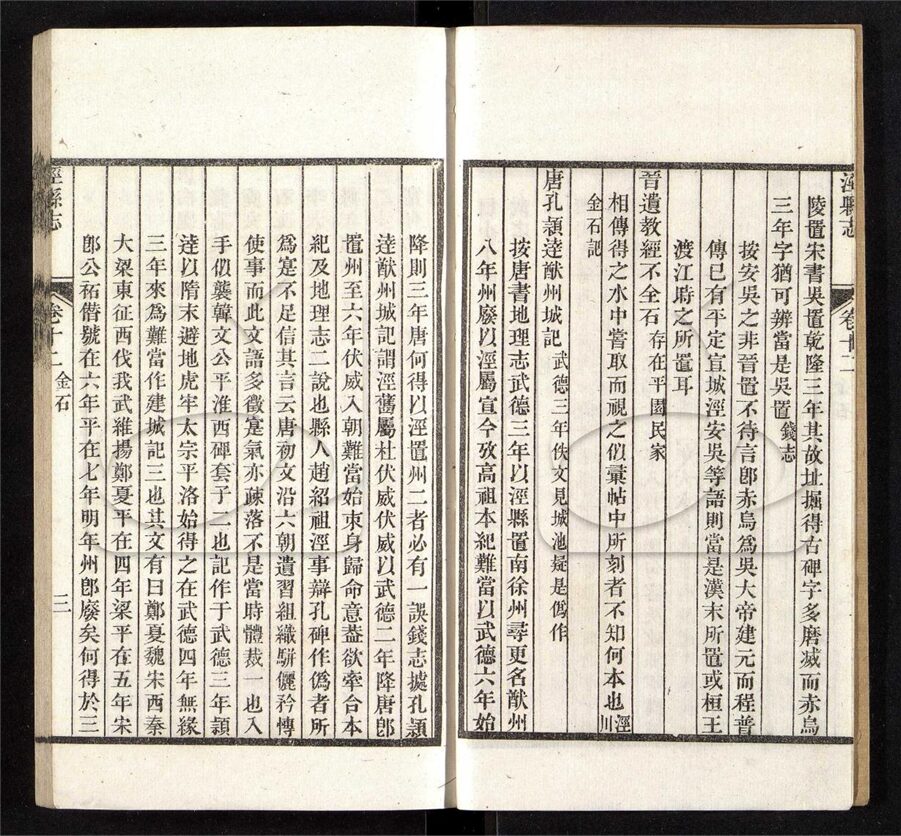 涇縣志
卷十二
陵置宋書吳置乾隆三年其故址掘得古碑字多磨滅而赤烏
三年字猶可辨當是吳置錢志
按安吳之非晉置不待言卽赤烏爲吳大帝建元而程普
傳已有平定宣城涇安吳等語則當是漢末所置或桓王
渡江時之所置耳
晉遺教經不全石存在平園民家
相傳得之水中嘗取而視之似彙帖中所刻者不知何本也涇川
金石記
唐孔頴逹猷州城記武德三年佚文見城池疑是僞作
按唐書地理志武德三年以涇縣置南徐州尋更名猷州
八年州廢以涇屬宣今攷高祖本紀難當以武德六年始
降則三年唐何得以涇置州二者必有一誤錢志據孔頴
逹猷州城記謂涇舊屬杜伏威伏威以武德二年降唐卽
置州至六年伏威入朝難當始束身歸命意葢欲牽合本
紀及地理志二說也縣人趙紹祖涇事辯孔碑作僞者所
爲寔不足信其言云唐初文沿六朝遺習組織駢儷矜慱
使事而此文語多徵寔氣亦疎落不是當時體裁一也入
手似襲韓文公平淮西碑套子二也記作于武德三年頴
逹以隋末避地虎牢太宗平洛始得之在武德四年無緣
三年來爲難當作建城記三也其文有曰鄭夏魏宋西秦
大梁東征西伐我武維揚鄭夏平在四年梁平在五年宋
卽公祏僭號在六年平在七年明年州卽廢矣何得於三
涇縣志
卷十二
金石
三